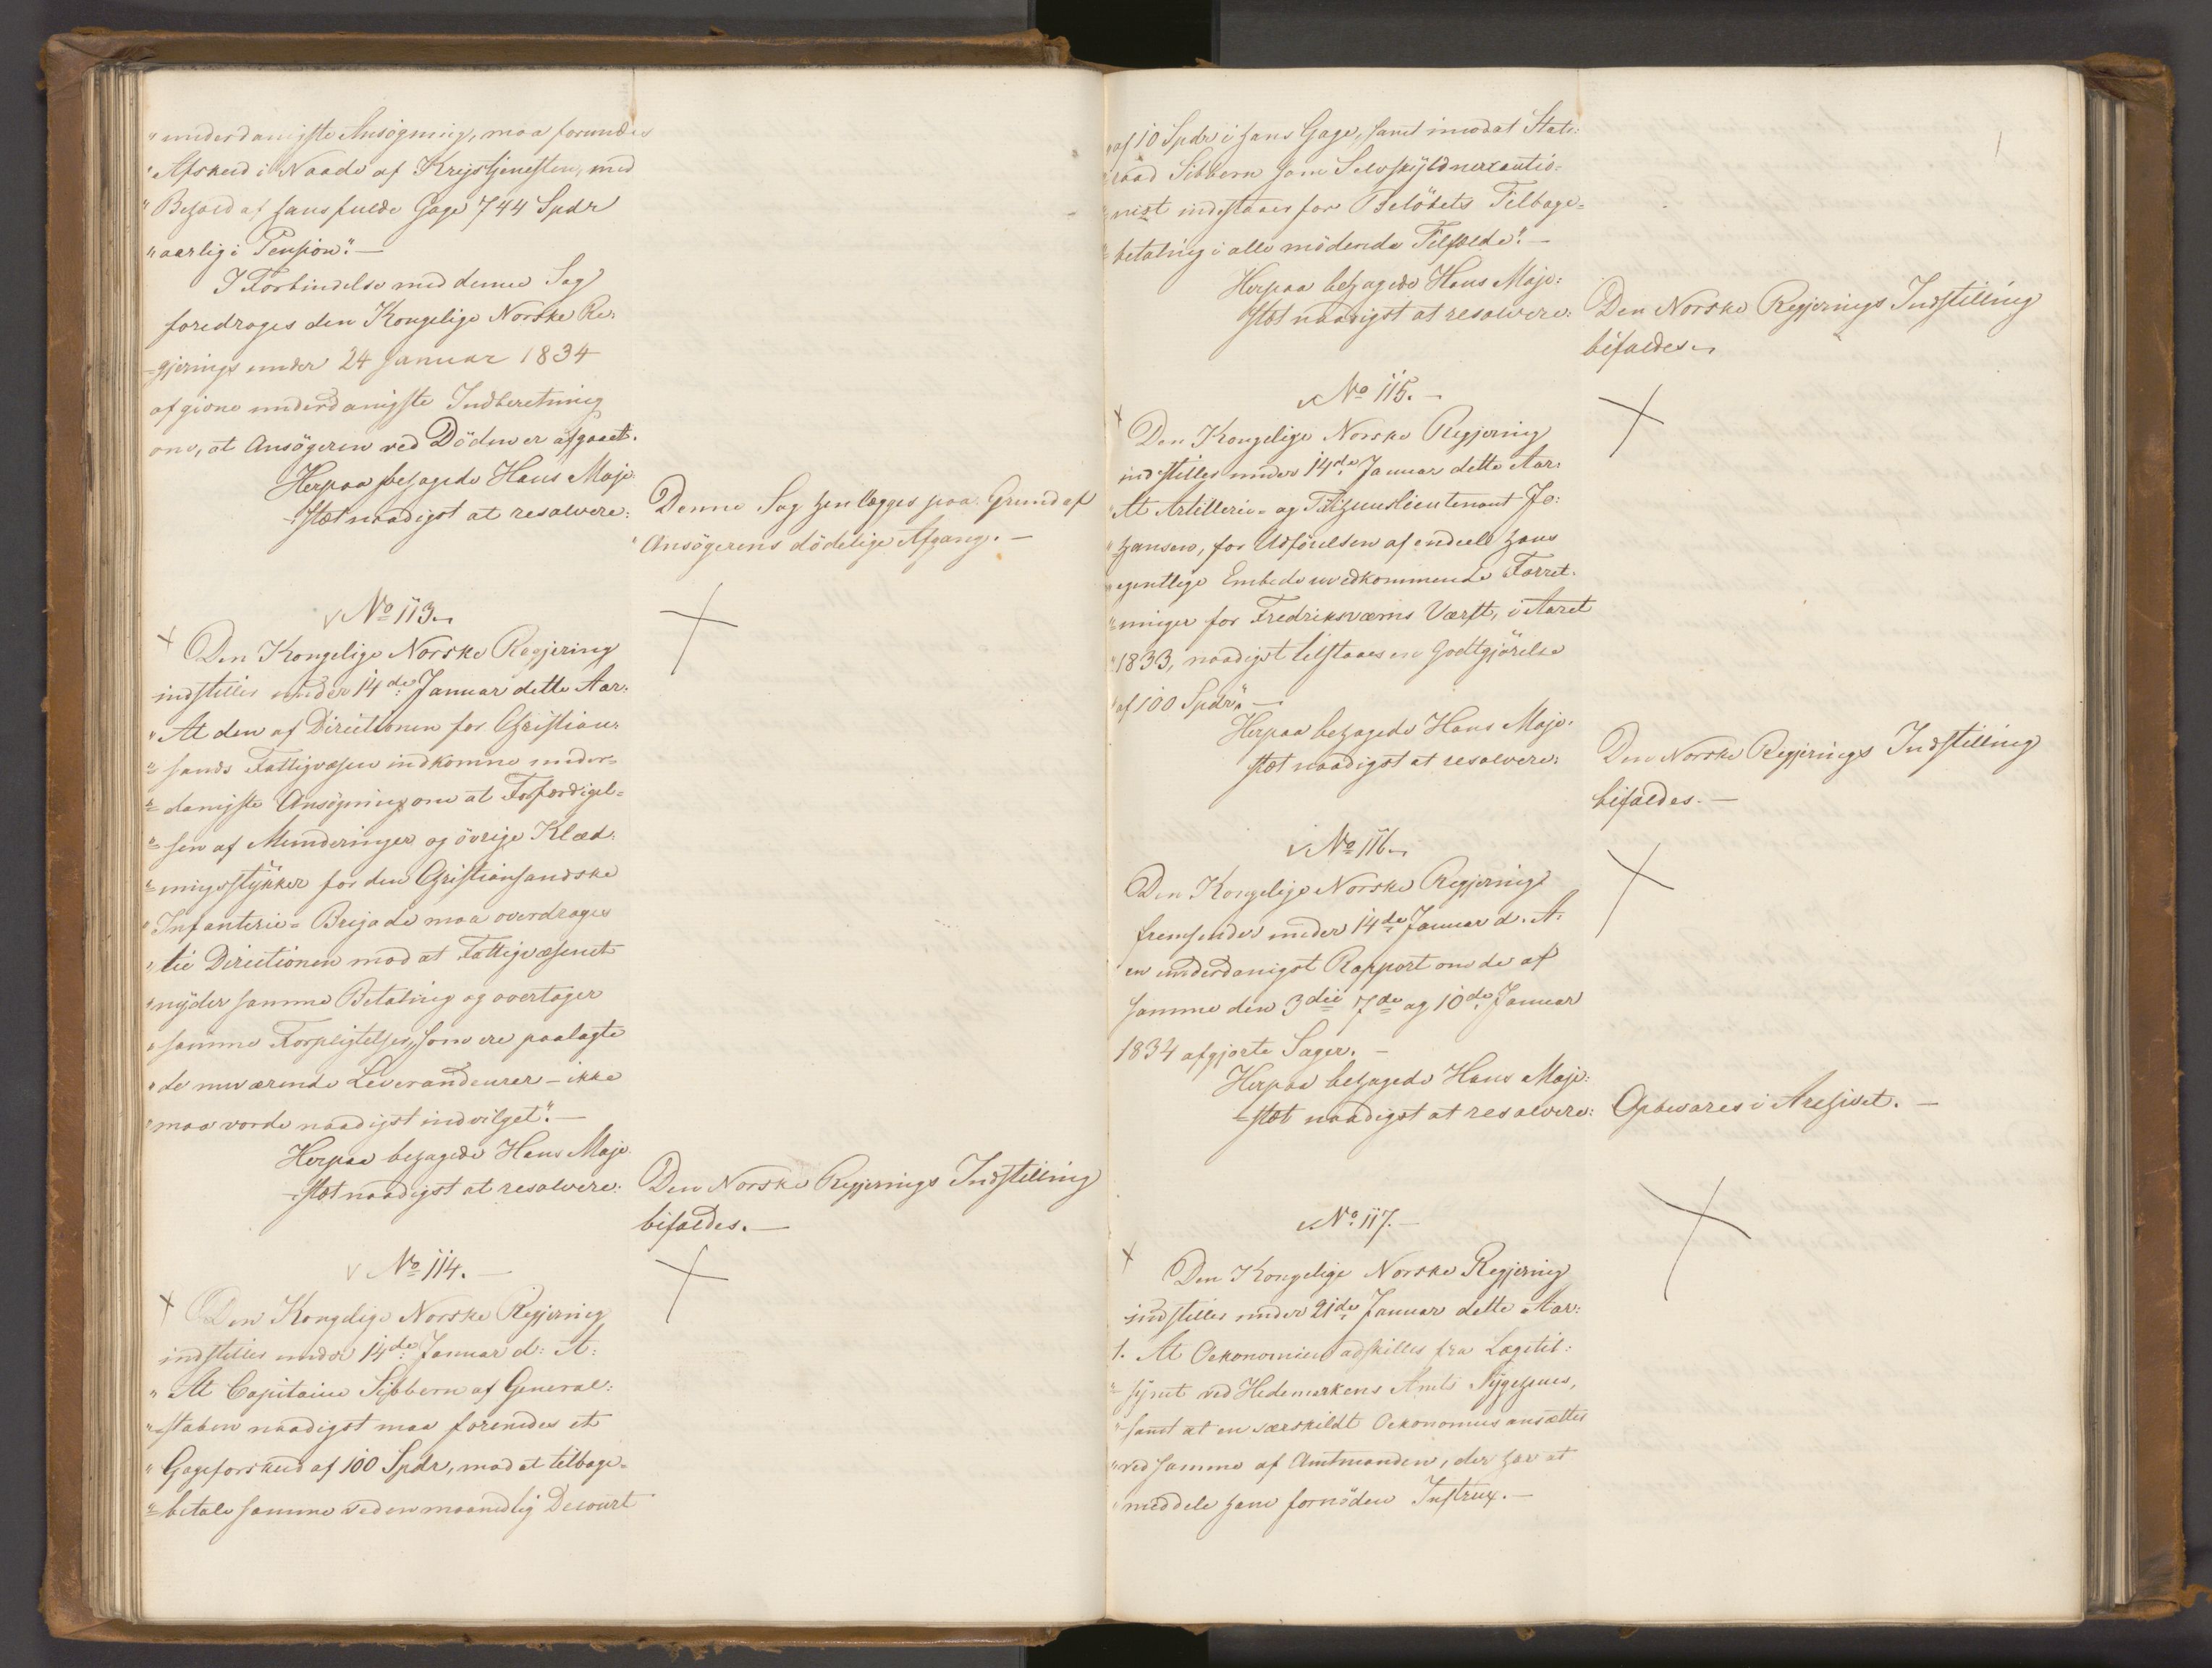 "underdanigste Ansøgning, maa forundes
"Afskeed i Naade af Krigstjenesten, med
"Behold af hans fulde Gage 744 Spdr
"aarlig i Pension." —
I Forbindelse med denne Sag
foredroges den Kongelige Norske Re-
-gjerings under 24 Januar 1834
afgivne underdanigste Indberetning
om, at Ansøgeren ved Döden er afgaaet.
Herpaa behagede Hans Maje-
-stæt naadigst at resolvere:
Denne Sag henlægges paa Grund af
Ansögerens dödelige Afgang. —
No 113.
Den Kongelige Norske Regjering
indstiller under 14de Januar dette Aar:
"At den af Directionen for Christian-
"sands Fattigvæsen indkomne under-
"danigste Ansøgning om at Forfærdigel-
"sen af Munderinger og övrige Klæd-
"ningsstykker for den Christiansandske
"Infanterie-Brigade maa overdrages
"til Directionen mod at Fattigvæsenet
"nyder samme Betaling og overtager
"samme Forpligtelser, som ere paalagte
"de nuværende Leverandeurer – ikke
"maa vorde naadigst indvilget". —
Herpaa behagede Hans Maje-
-stæt naadigst at resolvere:
Den Norske Regjerings Indstilling
bifaldes. —
No 114. —
Den Kongelige Norske Regjering
indstiller under 14de Januar d: A:
"At Capitaine Sibbern af General-
"staben naadigst maa forundes et
"Gageforskud af 100 Spdr, mod at tilbage-
"betale samme ved en maanedlig Decourt
"af 10 Spdr i hans Gage, samt imodat Stats-
"raad Sibbern som Selvskyldnercautio-
"nist indestaaer for Belöbets Tilbage-
"betaling i alle mödende Tilfælde". —
Herpaa behagede Hans Maje-
stæt naadigst at resolvere:
Den Norske Regjerings Indstilling
bifaldes.
No 115. —
Den Kongelige Norske Regjering
indstiller under 14de Januar dette Aar:
"At Artillerie- og Tøihuuslieutenant Jo-
"hansen, for Udförelsen af endeel hans
"egentlige Embede uvedkommende Forret-
"ninger for Fredriksværns Værft, i Aaret
"1833, naadigst tilstaaes en Godtgjörelse
"af 100 Spdr". —
Herpaa behagede Hans Maje-
stæt naadigst at resolvere:
Den Norske Regjerings Indstilling
bifaldes. —
No 116.
Den Kongelige Norske Regjering
fremsender under 14de Januar d. A.
en underdanigst Rapport om de af
samme den 3die 7de og 10de Januar
1834 afgjorte Sager. —
Herpaa behagede Hans Maje-
-stæt naadigst at resolvere:
Opbevares i Archivet. —
No 117. —
Den Kongelige Norske Regjering
indstiller under 21de Januar dette Aar:
1. At Oekonomien adskilles fra Lægetil-
"synet ved Hedemarkens Amts Sygehuus,
"samt at en særskildt Oekonomus ansættes
"ved samme af Amtmanden, der har at
"meddele ham fornöden Instrux. —